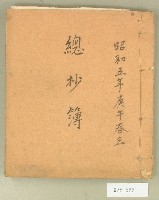 昭和五年庚午春立
總抄簿